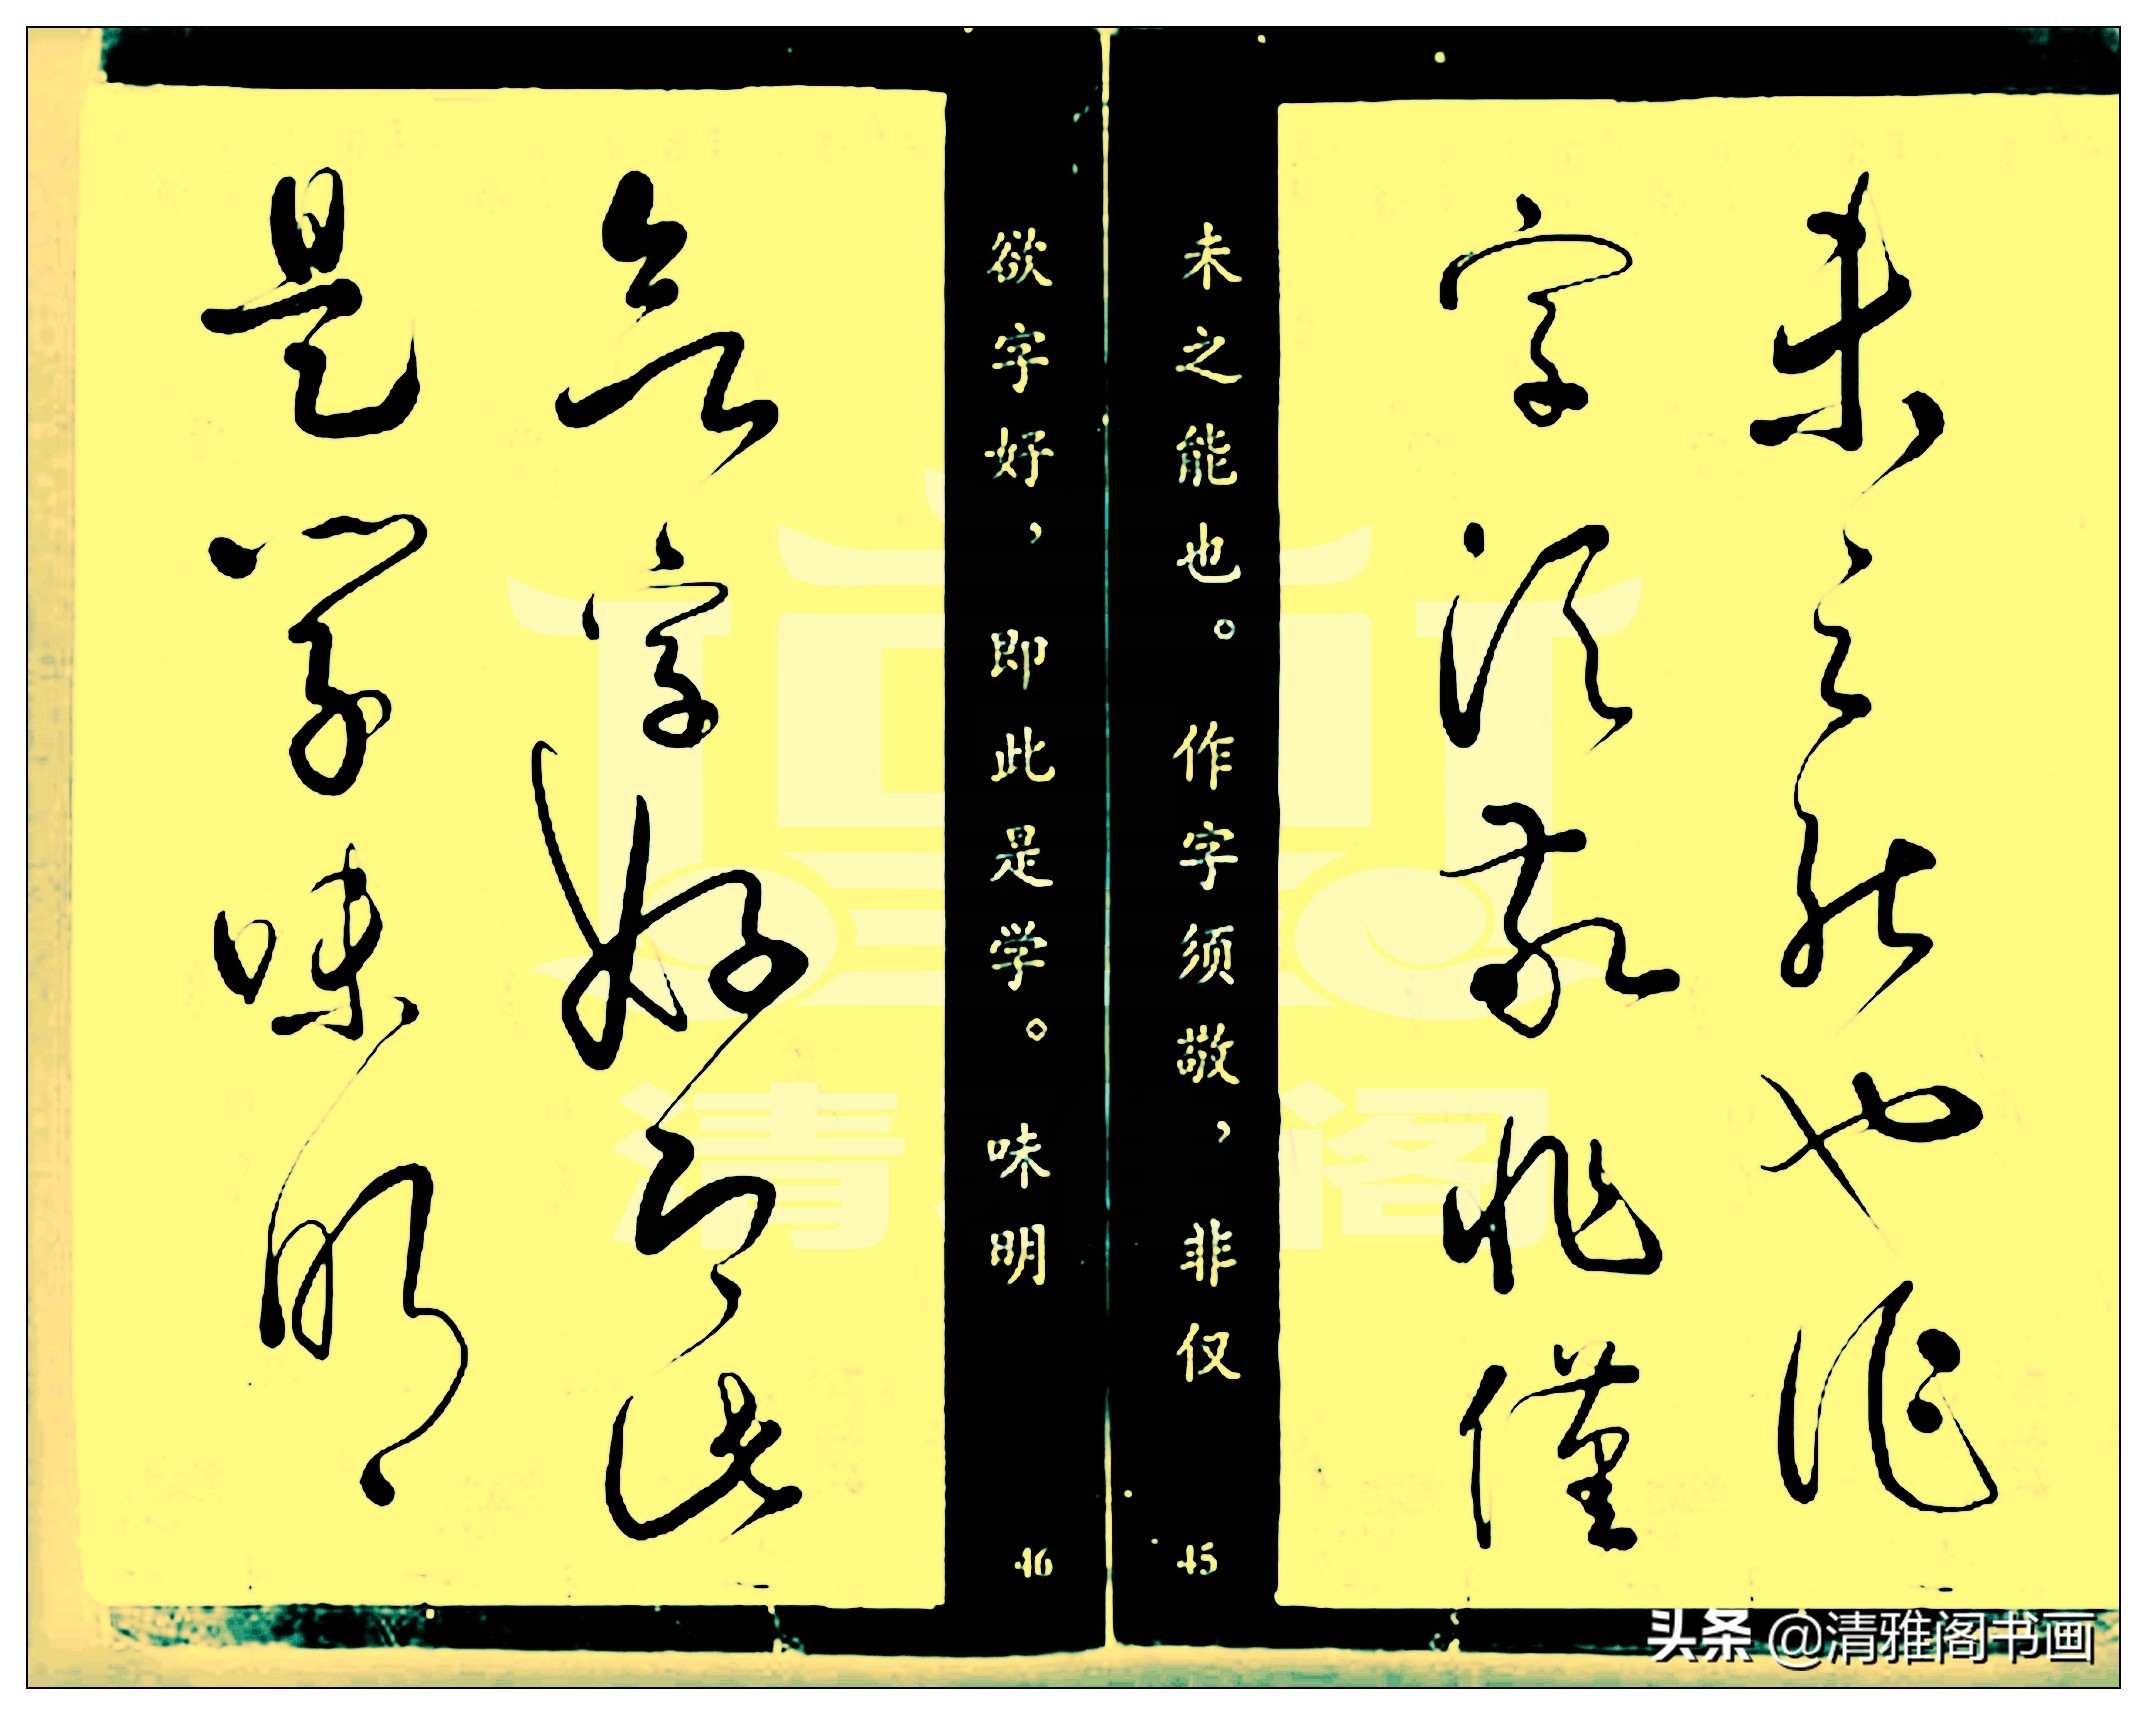 未之能也作
字须敬非僅
未之能也。作字须敬，非仅
45
欲字好，即此是学。味明
46
欲字好即此
是学味明
清雅阁
头条 @清雅阁书画